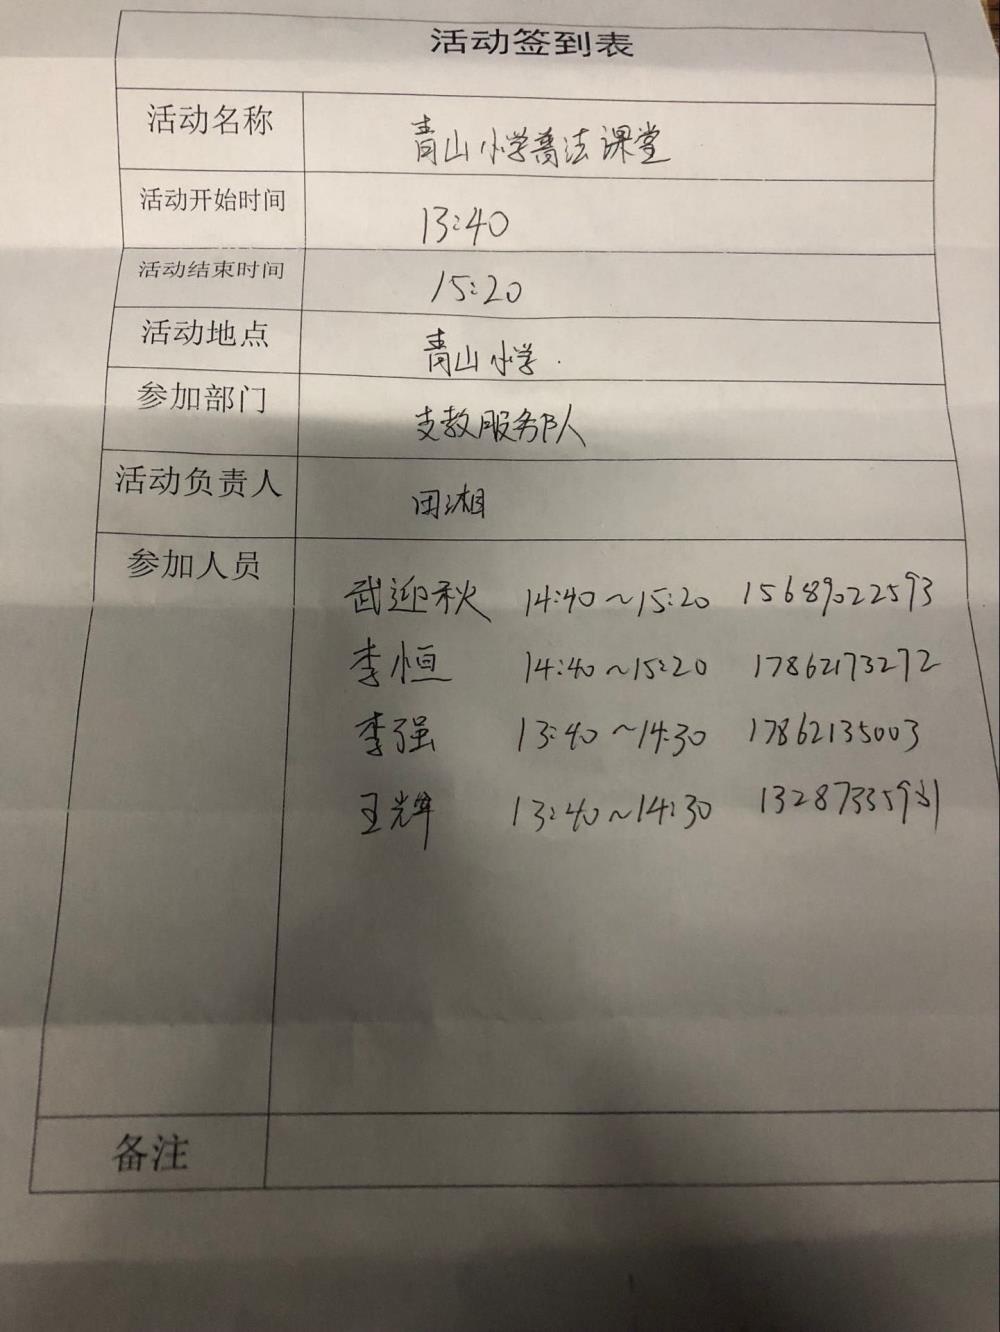 活动签到表
活动名称 青山小学普法课堂
活动开始时间 13:40
活动结束时间 15:20
活动地点 青山小学.
参加部门 支教服务队
活动负责人 田湘
参加人员
武迎秋 14:40~15:20 15689022593
李恒 14:40~15:20 17862173272
李强 13:40~14:30 17862135003
王辉 13:40~14:30
备注